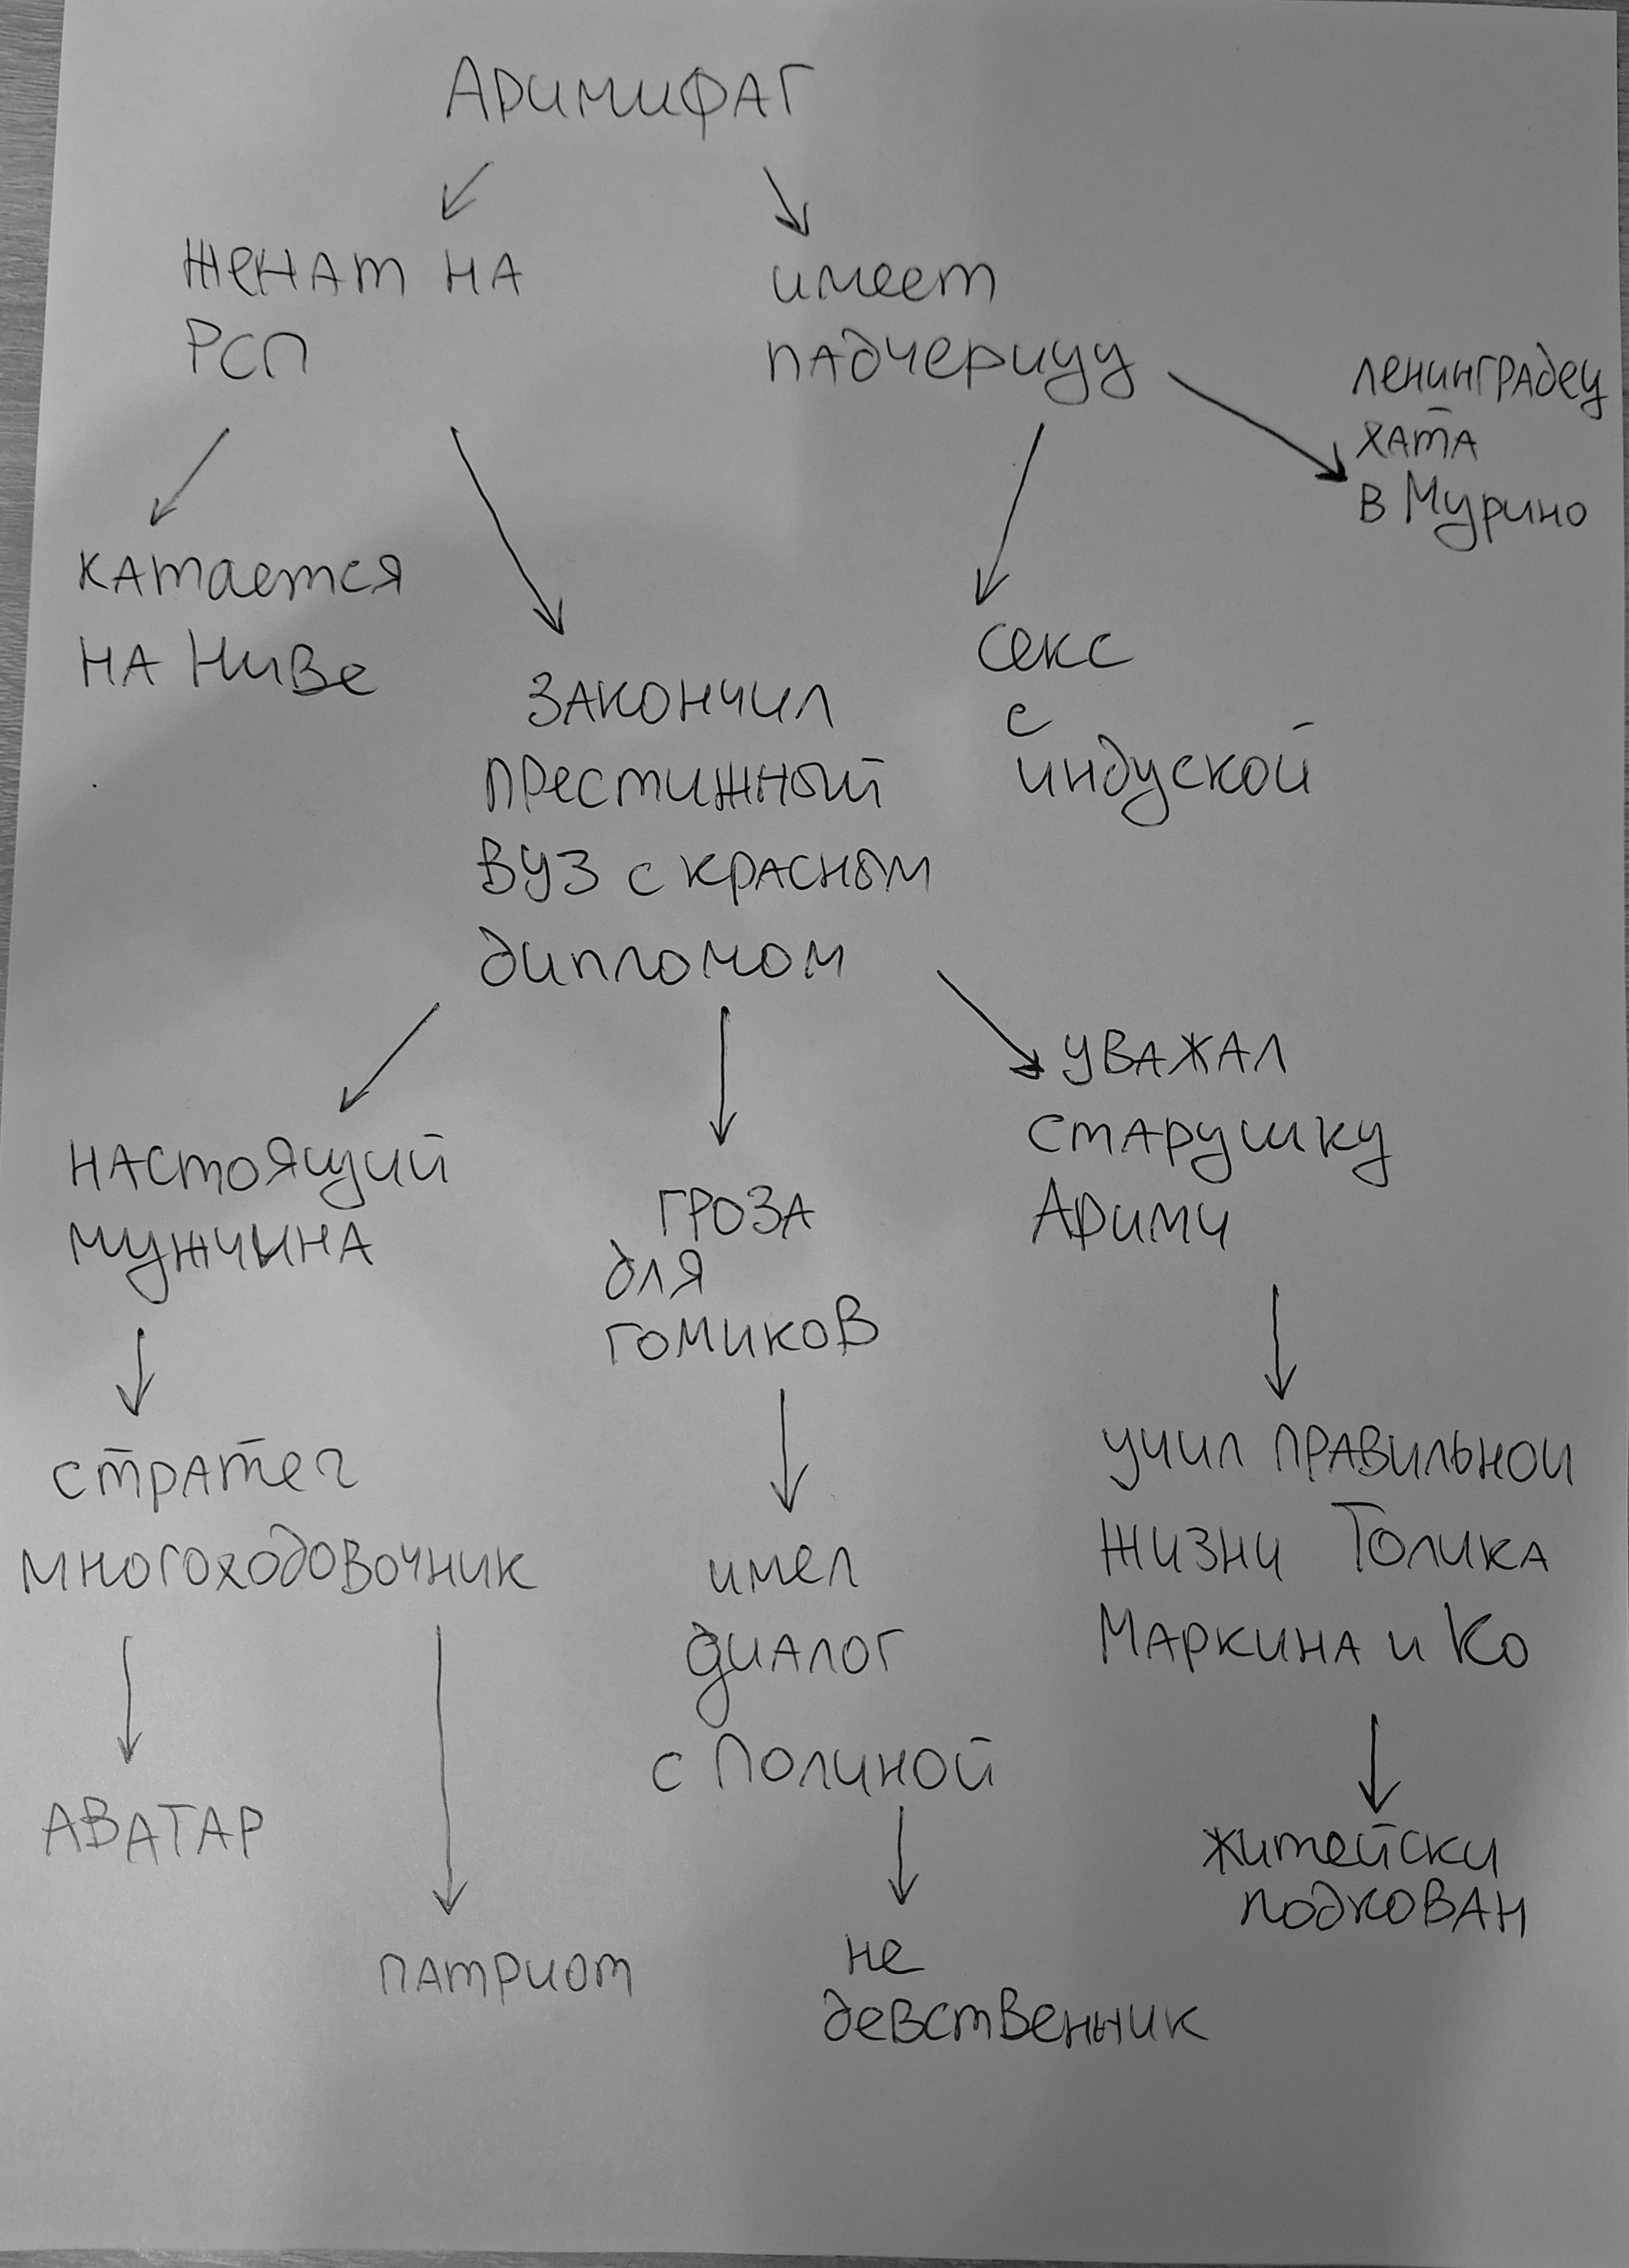 Аримифаг
женат на
РСП
имеет
падчерицу
ленинградец
хата
в Мурино
катается
на Ниве
закончил
престижный
ВУЗ с красным
дипломом
секс
с
индуской
настоящий
мужчина
гроза
для
гомиков
уважал
старушку
Арими
стратег
многоходовочник
имел
диалог
с Полиной
учил правильной
жизни Толика
Маркина и Ко
аватар
патриот
не
девственник
житейски
подкован